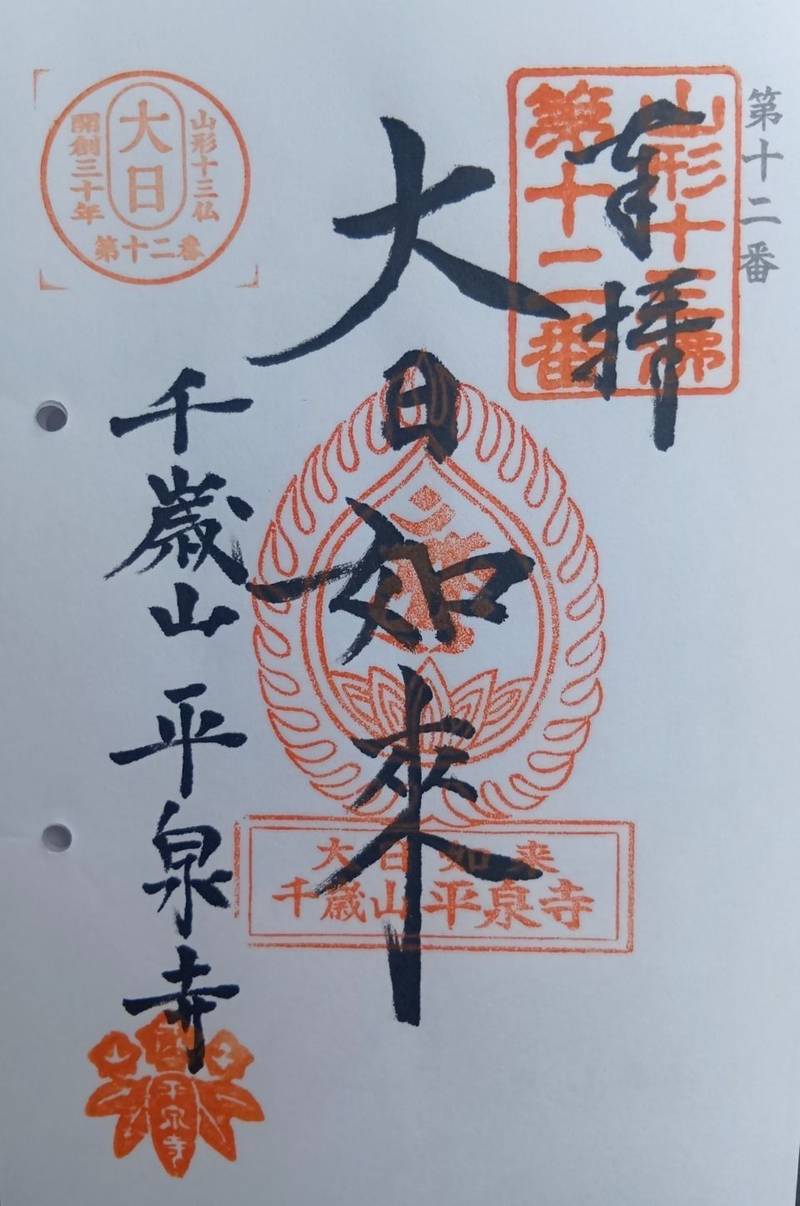 第十二番
山形十三佛
第十二番
奉拝
大日如來
千歳山 平泉寺
山形十三仏
大日
開創三十年
第十二番
大日如来
千歳山平泉寺
平泉寺